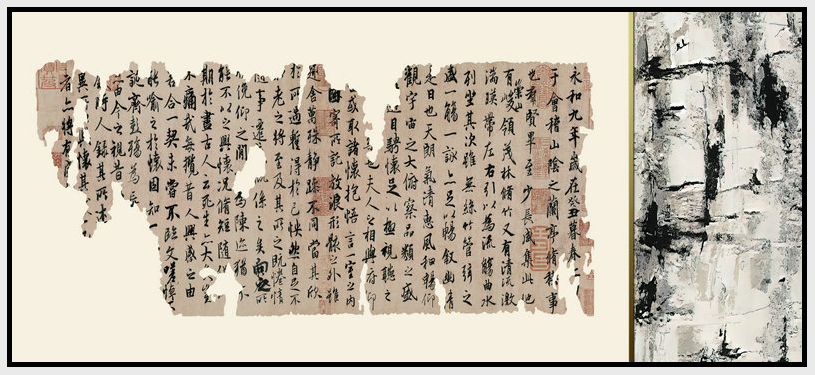 永和九年歲在癸丑暮春
于會稽山陰之蘭亭脩稧事
也群賢畢至少長咸集此地
有崇山峻領茂林脩竹又有清流激
湍暎帶左右引以為流觴曲水
列坐其次雖無絲竹管絃之
盛一觴一詠亦足以暢敘幽情
是日也天朗氣清惠風和暢仰
觀宇宙之大俯察品類之盛
目騁懷足極視聽之
夫人之相與俯仰
或取諸懷抱悟言一室之內
因寄所託放浪形骸之外雖
趣舍萬殊靜躁不同當其欣
於所遇得於己怏然自足不
老之將至及其所之既惓情
事遷係之矣向之所
俛仰之間為陳迹猶不
能不以之興懷況脩短隨
期於盡古人云死生亦大
不痛哉每攬昔人興感之由
合一契未嘗不臨文嗟悼
能喻之於懷固知一
誕齊彭殤為妄
由今之視昔
時人錄其所述
異其懷其
者亦將有